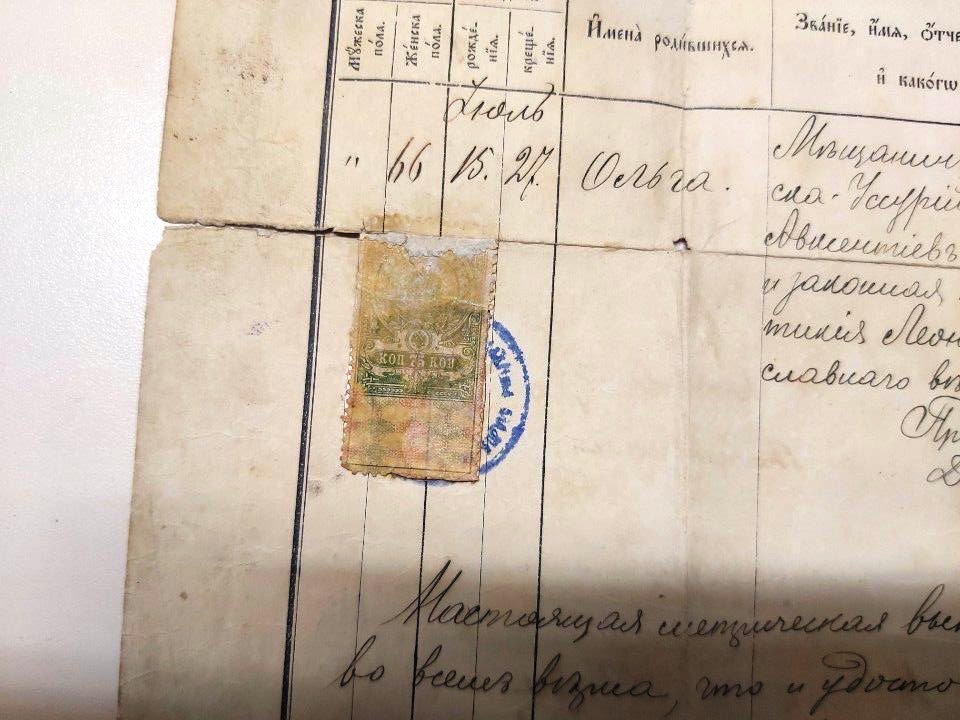 Мꙋ́жеска по́ла.
Же́нска по́ла.
рожде́-нїѧ.
креще́-нїѧ.
И҆мена̀ роди́вшихсѧ.
Зва́нїе, и҆́мѧ, ѻ҆́тче
и҆ како́гѡ
Іюль
" 66 15. 27. Ольга.
Мѣщанин
ска-Уссурій
Авксентіевъ
и законная
тикія Леон
славнаго вѣ
Пр
Д
КОП 75 КОП
Настоящая метрическая вып
во всемъ вѣрна, что и удосто